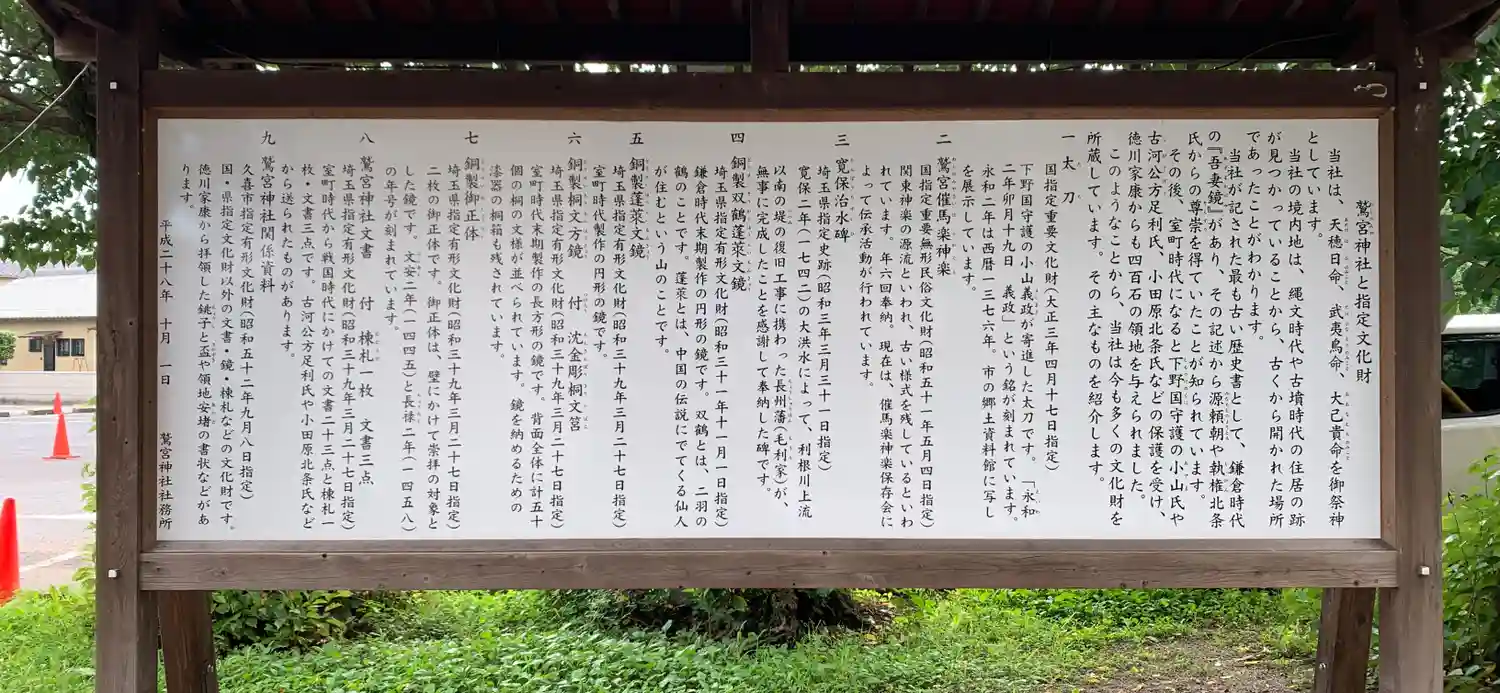 鷲宮神社と指定文化財
当社は、天穂日命、武夷鳥命、大己貴命を御祭神
としています。
当社の境内地は、縄文時代や古墳時代の住居の跡
が見つかっていることから、古くから開かれた場所
であったことがわかります。
当社が記された最も古い歴史書として、鎌倉時代
の『吾妻鏡』があり、その記述から源頼朝や執権北条
氏からの尊崇を得ていたことが知られています。
その後、室町時代になると下野国守護の小山氏や
古河公方足利氏、小田原北条氏などの保護を受け、
徳川家康からも四百石の領地を与えられました。
このようなことから、当社は今も多くの文化財を
所蔵しています。その主なものを紹介します。
一 太刀
国指定重要文化財(大正三年四月十七日指定)
下野国守護の小山義政が寄進した太刀です。「永和
二年卯月十九日 義政」という銘が刻まれています。
永和二年は西暦一三七六年。市の郷土資料館に写し
を展示しています。
二 鷲宮催馬楽神楽
国指定重要無形民俗文化財(昭和五十一年五月四日指定)
関東神楽の源流といわれ、古い様式を残しているといわ
れています。年六回奉納。現在は、催馬楽神楽保存会に
よって伝承活動が行われています。
三 寛保治水碑
埼玉県指定史跡(昭和三年三月三十一日指定)
寛保二年(一七四二)の大洪水によって、利根川上流
以南の堤の復旧工事に携わった長州藩(毛利家)が、
無事に完成したことを感謝して奉納した碑です。
四 銅製双鶴蓬萊文鏡
埼玉県指定有形文化財(昭和三十一年十一月一日指定)
鎌倉時代末期製作の円形の鏡です。双鶴とは、二羽の
鶴のことです。蓬萊とは、中国の伝説にでてくる仙人
が住むという山のことです。
五 銅製蓬萊文鏡
埼玉県指定有形文化財(昭和三十九年三月二十七日指定)
室町時代製作の円形の鏡です。
六 銅製桐文方鏡 付 沈金彫桐文筥
埼玉県指定有形文化財(昭和三十九年三月二十七日指定)
室町時代末期製作の長方形の鏡です。背面全体に計五十
個の桐の文様が並べられています。鏡を納めるための
漆器の桐箱も残されています。
七 銅製御正体
埼玉県指定有形文化財(昭和三十九年三月二十七日指定)
二枚の御正体です。御正体は、壁にかけて崇拝の対象と
した鏡です。文安二年(一四四五)と長禄二年(一四五八)
の年号が刻まれています。
八 鷲宮神社文書 付 棟札一枚 文書三点
埼玉県指定有形文化財(昭和三十九年三月二十七日指定)
室町時代から戦国時代にかけての文書二十三点と棟札一
枚・文書三点です。古河公方足利氏や小田原北条氏など
から送られたものがあります。
九 鷲宮神社関係資料
久喜市指定有形文化財(昭和五十二年九月八日指定)
国・県指定文化財以外の文書・鏡・棟札などの文化財です。
徳川家康から拝領した銚子と盃や領地安堵の書状などがあ
ります。
平成二十八年 十月 一日
鷲宮神社社務所